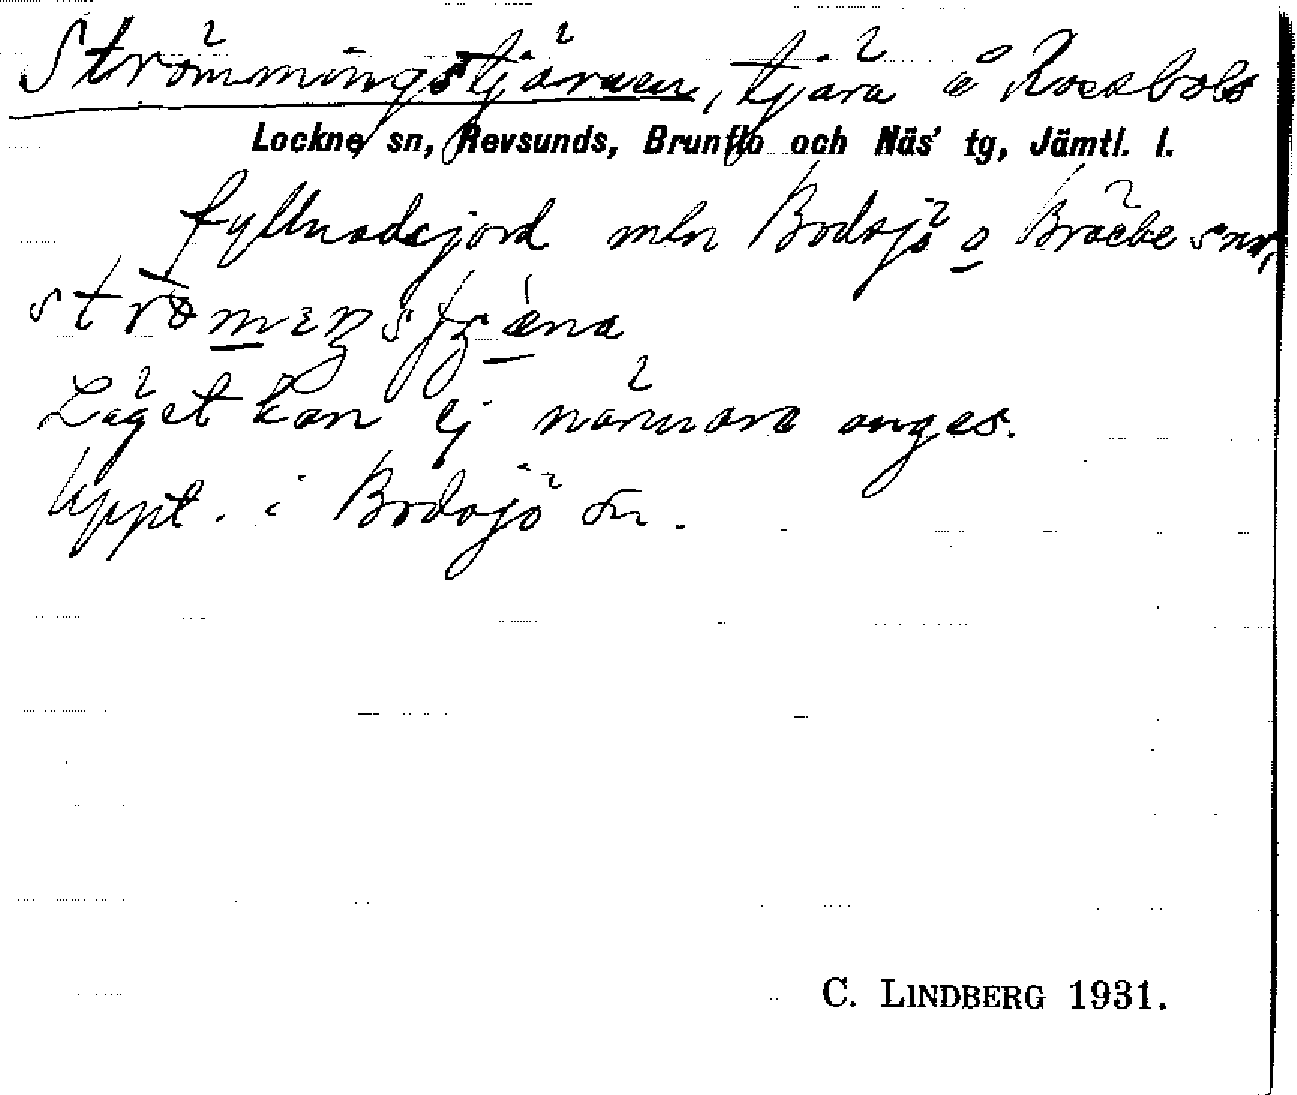 Strömmingstjärnen, tjärn å Rosabols
Lockne sn, Revsunds, Brunflo och Näs' tg, Jämtl. l.
fyllnadsjord mln Bodsjö o Bräcke snr,
Läget kan ej närmare anges.
Uppt. i Bodsjö sn.
C. LINDBERG 1931.